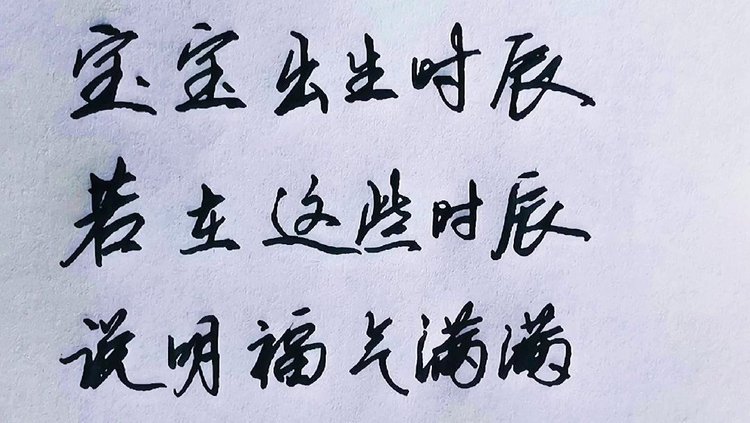 宝宝出生时辰
若在这些时辰
说明福气满满